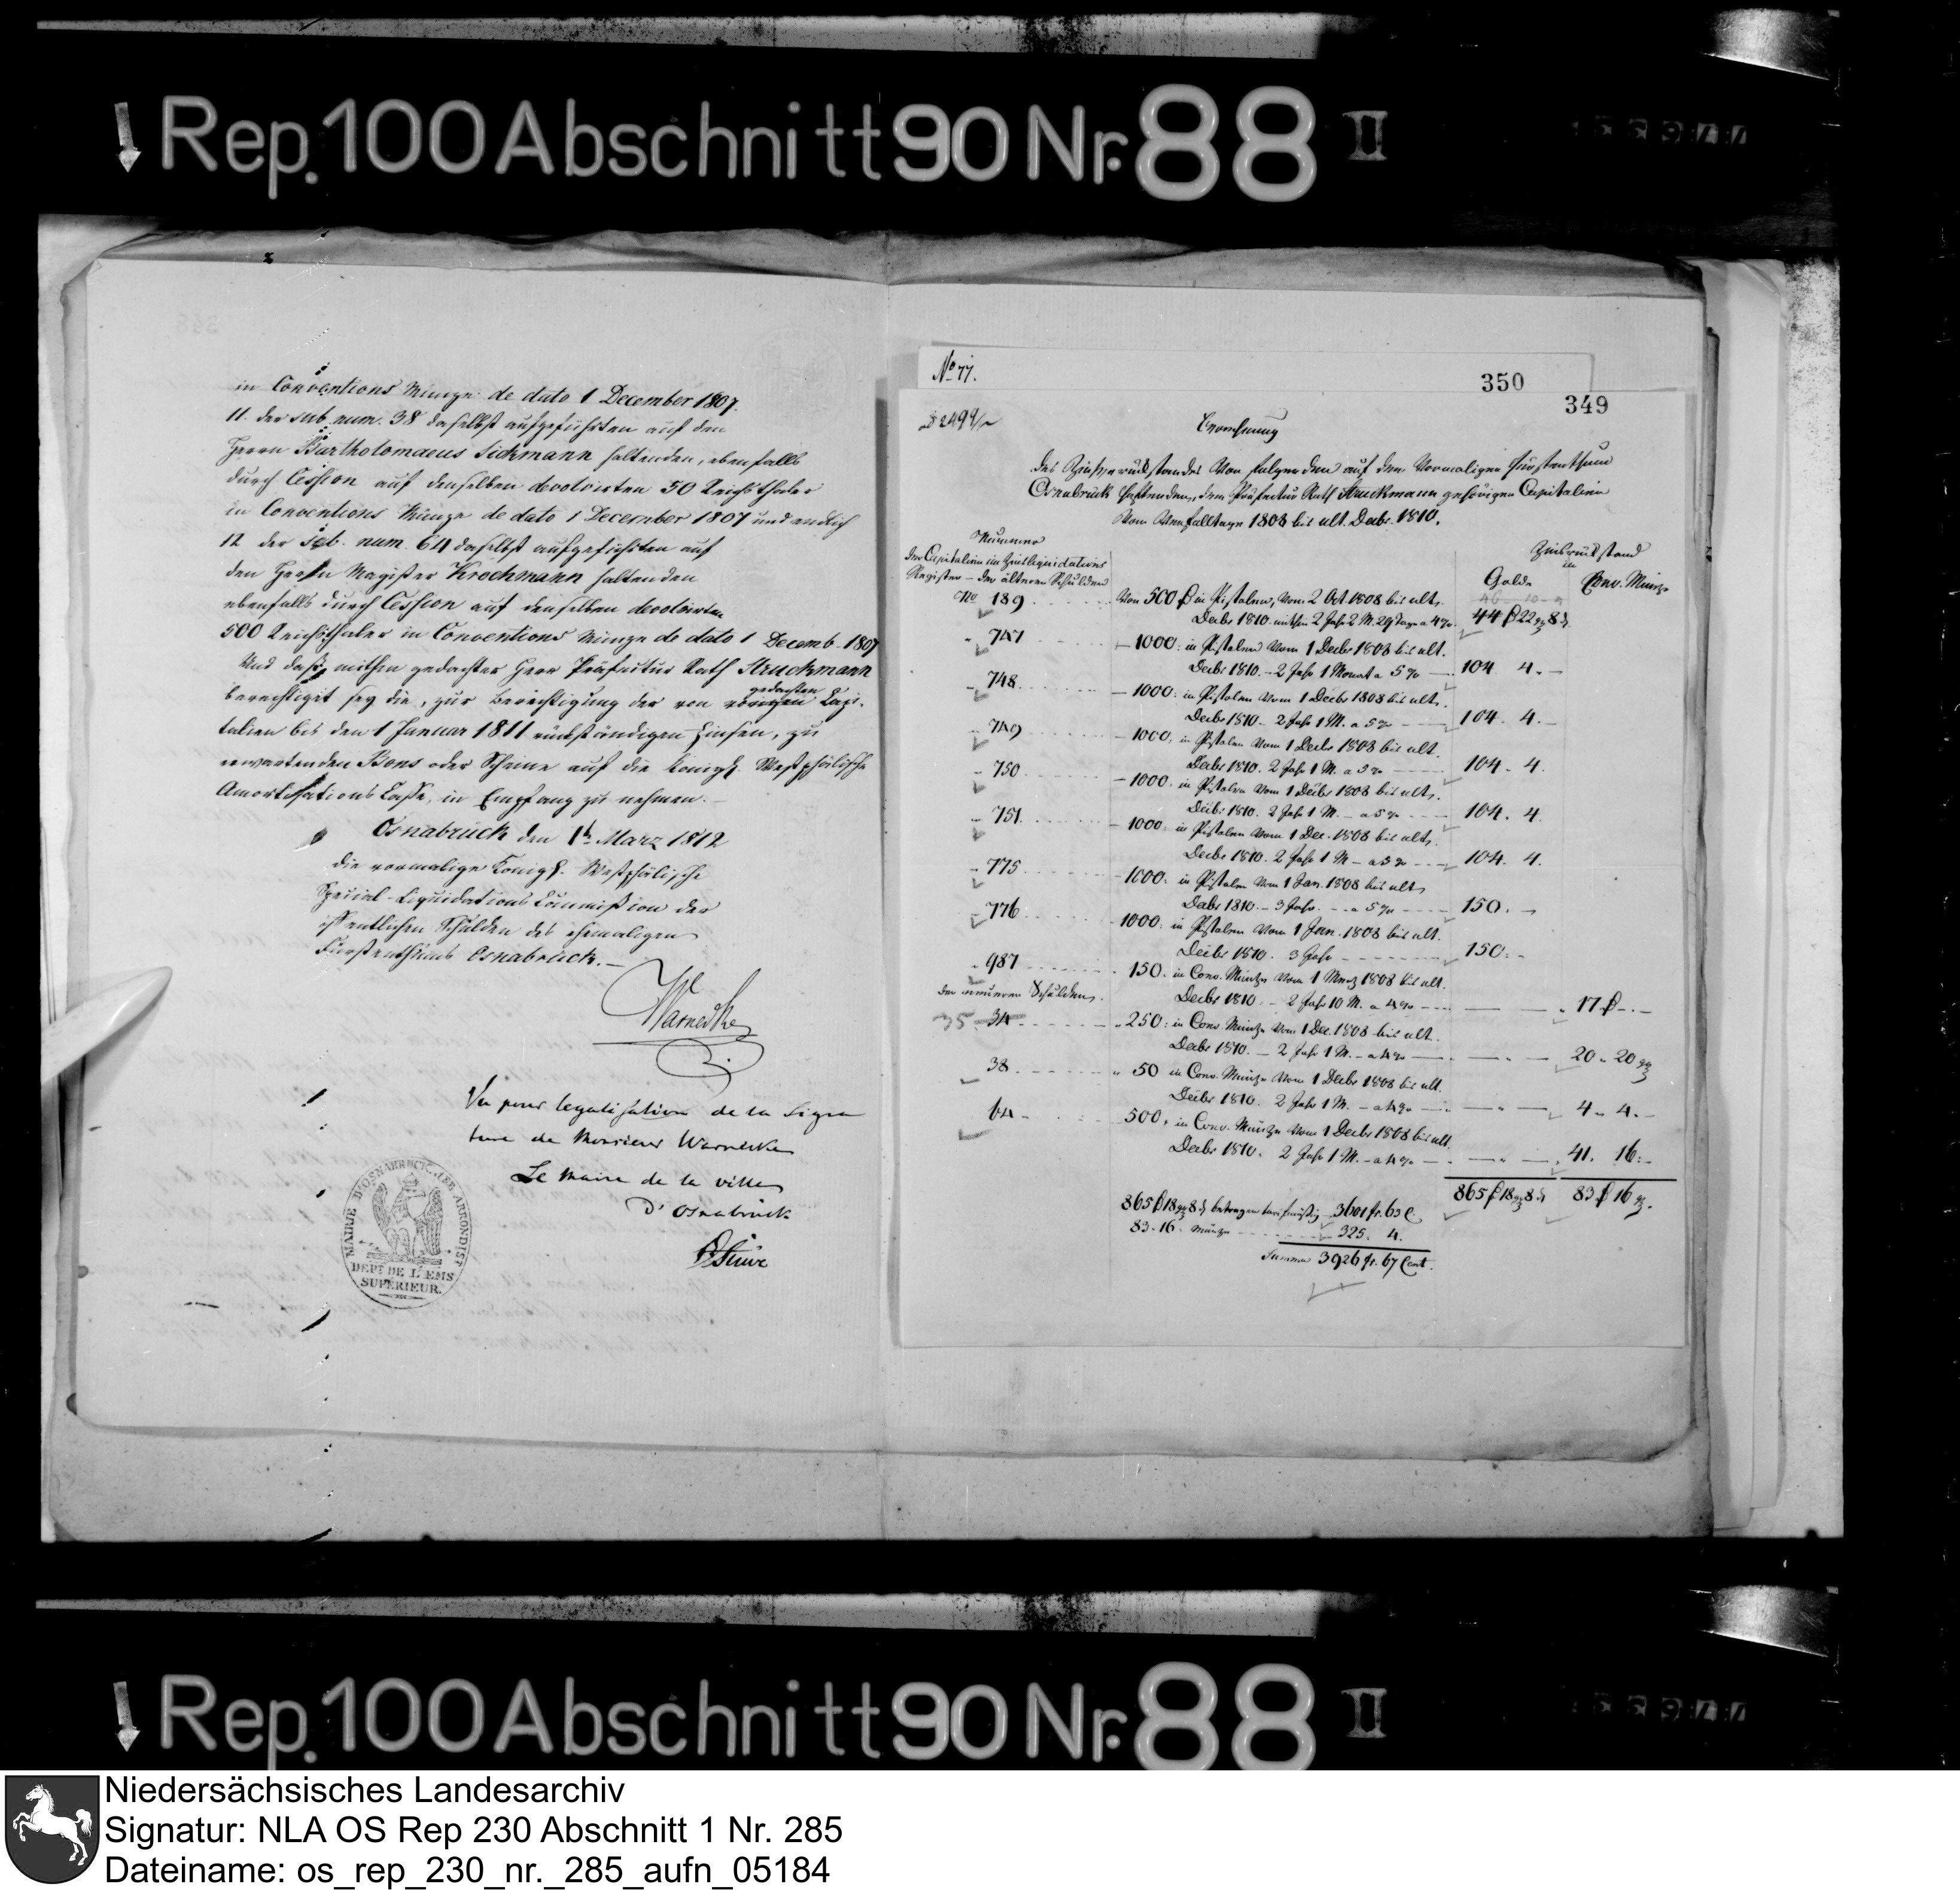 Rep. 100 Abschnitt 90 Nr. 88 II
in Conventions Münze de dato 1 December 1807.
11. der sub num. 38 daselbst aufgeführten auf den
Herrn Bartholomaeus Sickmann haltenden, ebenfalls
durch Cession auf denselben devolvirten 50 Reichsthaler
in Conventions Münze de dato 1 December 1807 und endlich
12 der sub. num. 64 daselbst aufgeführten auf
den Herrn Magister Krochmann haltenden
ebenfalls durch Cession auf denselben devolvirten
500 Reichsthaler in Conventions Münze de dato 1 Decemb. 1807
Und daß mithin gedachter Herr Präfectur Rath Struckmann
berechtiget sey die, zur Berichtigung der von gedachten Capi-
talien bis den 1 Januar 1811 rückständigen Zinsen, zu
erwartenden Bons oder Scheine auf die Königl. Westphälische
Amortisations Casse, in Empfang zu nehmen.
Osnabrück den 1t März 1812
die vormalige Königl. Westphälische
Special-Liquidations Commission der
öffentlichen Schulden des ehemaligen
Fürstenthums Osnabrück.
Warnecke
Vu pour legalisation de la Signa
ture de Monsieur Warnecke
Le Maire de la ville
D'Osnabrück
Stüve
MAIRIE D'OSNABRUCK. IER ARRONDIST
DEPT DE L'EMS
SUPÉRIEUR.
No 77.
350
349
Berechnung
des Zinsrückstandes von folgenden auf dem vormaligen Fürstenthum
Osnabrück haftenden, dem Präfectur Rath Struckmann gehörigen Capitalien
vom Verfalltage 1808 bis ult. Decbr. 1810.
Nummer
der Capitalien im Zinsliquidations
Register – der ältern Schulden
Zinsrückstand
in
Golde Conv. Münze
No 189 Von 500 in Pistolen, vom 2 Oct. 1808 bis ult.
Decbr 1810 mithin 2 Jahr 2 M. 29 Tage a 4% 44 22 8
747 1000 in Pistolen vom 1 Decbr 1808 bis ult.
Decbr 1810 - 2 Jahr 1 Monat a 5% 104 4. -
748 1000 in Pistolen vom 1 Decbr 1808 bis ult.
Decbr 1810 - 2 Jahr 1 M. a 5% 104. 4. -
749 1000 in Pistolen vom 1 Decbr 1808 bis ult.
Decbr 1810. 2 Jahr 1 M. a 5% 104. 4.
750 1000. in Pistolen vom 1 Decbr 1808 bis ult.
Decbr 1810. 2 Jahr 1 M. - a 5% 104. 4.
751 1000. in Pistolen vom 1 Dec. 1808 bis ult.
Decbr 1810. 2 Jahr 1 M - a 5% 104. 4.
775 1000. in Pistolen vom 1 Jan. 1808 bis ult
Decbr 1810. - 3 Jahr. - a 5% 150. -
776 1000. in Pistolen vom 1 Jan. 1808 bis ult.
Decbr 1810. 3 Jahr 150. -
987 150. in Conv. Münze vom 1 Merz 1808 bis ult.
Decbr 1810. - 2 Jahr 10 M. a 4% 17 - . -
der neueren Schulden.
35 34 250 in Conv Münze vom 1 Dec. 1808 bis ult.
Decbr 1810. - 2 Jahr 1 M. - a 4% 20 . 20
38 50 in Conv. Münze vom 1 Decbr 1808 bis ult.
Decbr 1810. 2 Jahr 1 M. - a 4% 4 . 4. -
64 500, in Conv. Münze vom 1 Decbr 1808 bis ult.
Decbr 1810. 2 Jahr 1 M. - a 4% 41. 16. -
865 18 8 83 16
865 18 8 betragen tarifmäßig 3601 fr. 63 c
83. 16. Münze 325. 4.
Summa 3926 fr. 67 Cent.
Rep. 100 Abschnitt 90 Nr. 88 II
Niedersächsisches Landesarchiv
Signatur: NLA OS Rep 230 Abschnitt 1 Nr. 285
Dateiname: os_rep_230_nr._285_aufn_05184